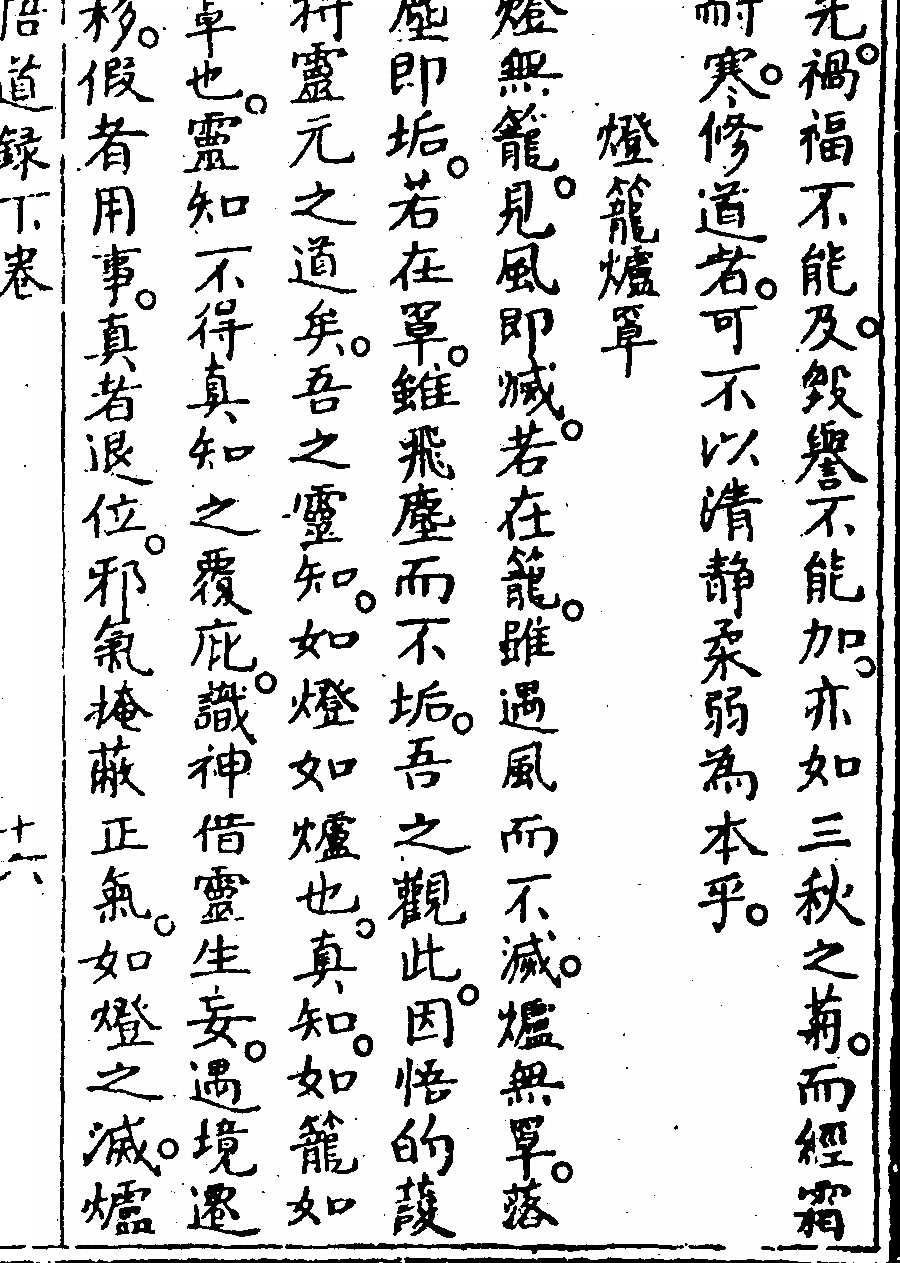 光。禍福不能及。毀譽不能加。亦如三秋之菊。而經霜
耐寒。修道者。可不以清靜柔弱為本乎。
燈籠爐罩
燈無籠。見風即滅。若在籠。雖遇風而不滅。爐無罩。落
塵即垢。若在罩。雖飛塵而不垢。吾之觀此。因悟的護
持靈元之道矣。吾之靈知。如燈如爐也。真知。如籠如
罩也。靈知不得真知之覆庇。識神借靈生妄。遇境遷
移。假者用事。真者退位。邪氣掩蔽正氣。如燈之滅。爐
悟道錄下卷 十六